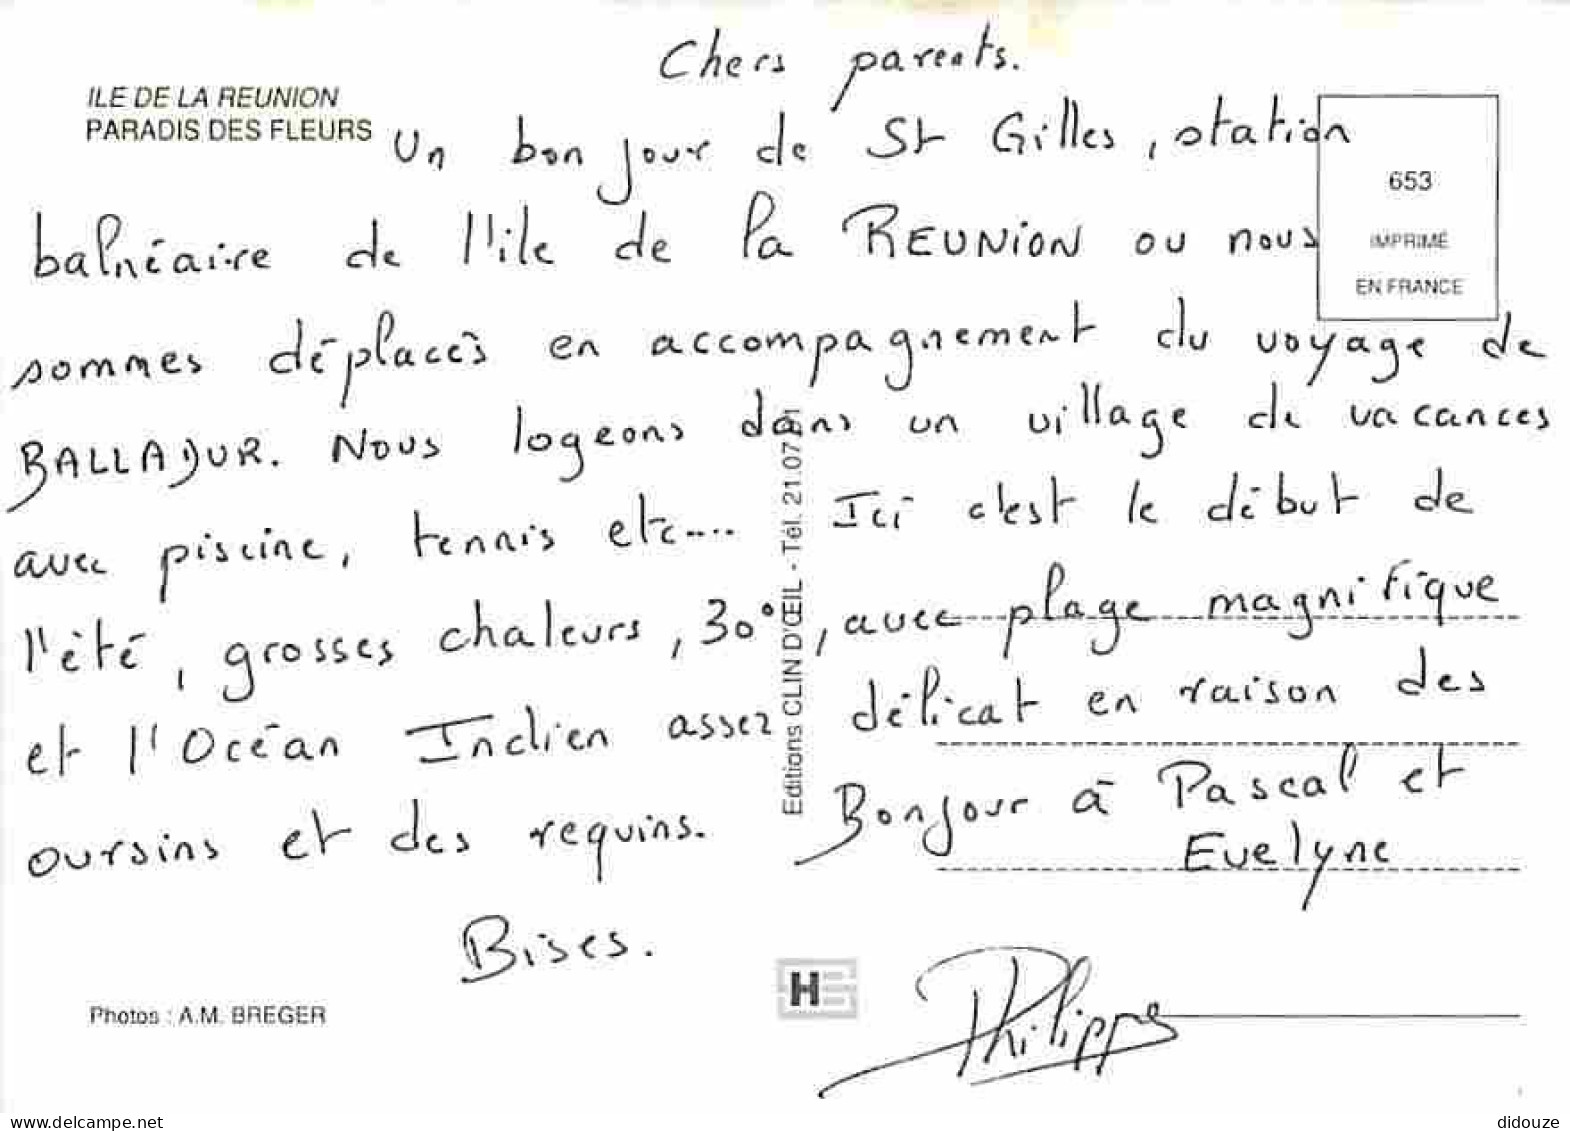 Chers parents.
ILE DE LA REUNION
PARADIS DES FLEURS
Un bonjour de St Gilles, station
balnéaire de l'ile de la REUNION ou nous
sommes déplacés en accompagnement du voyage de
BALLADUR. Nous logeons dans un village de vacances
avec piscine, tennis etc.... Ici c'est le début de
l'été, grosses chaleurs, 30°, avec plage magnifique
et l'Océan Indien assez délicat en raison des
oursins et des requins. Bonjour à Pascal et
Evelyne
Bises.
Philippe
653
IMPRIMÉ
EN FRANCE
Editions CLIN D'ŒIL - Tél. 21.07
HE
Photos : A.M. BREGER
www.delcampe.net
didouze